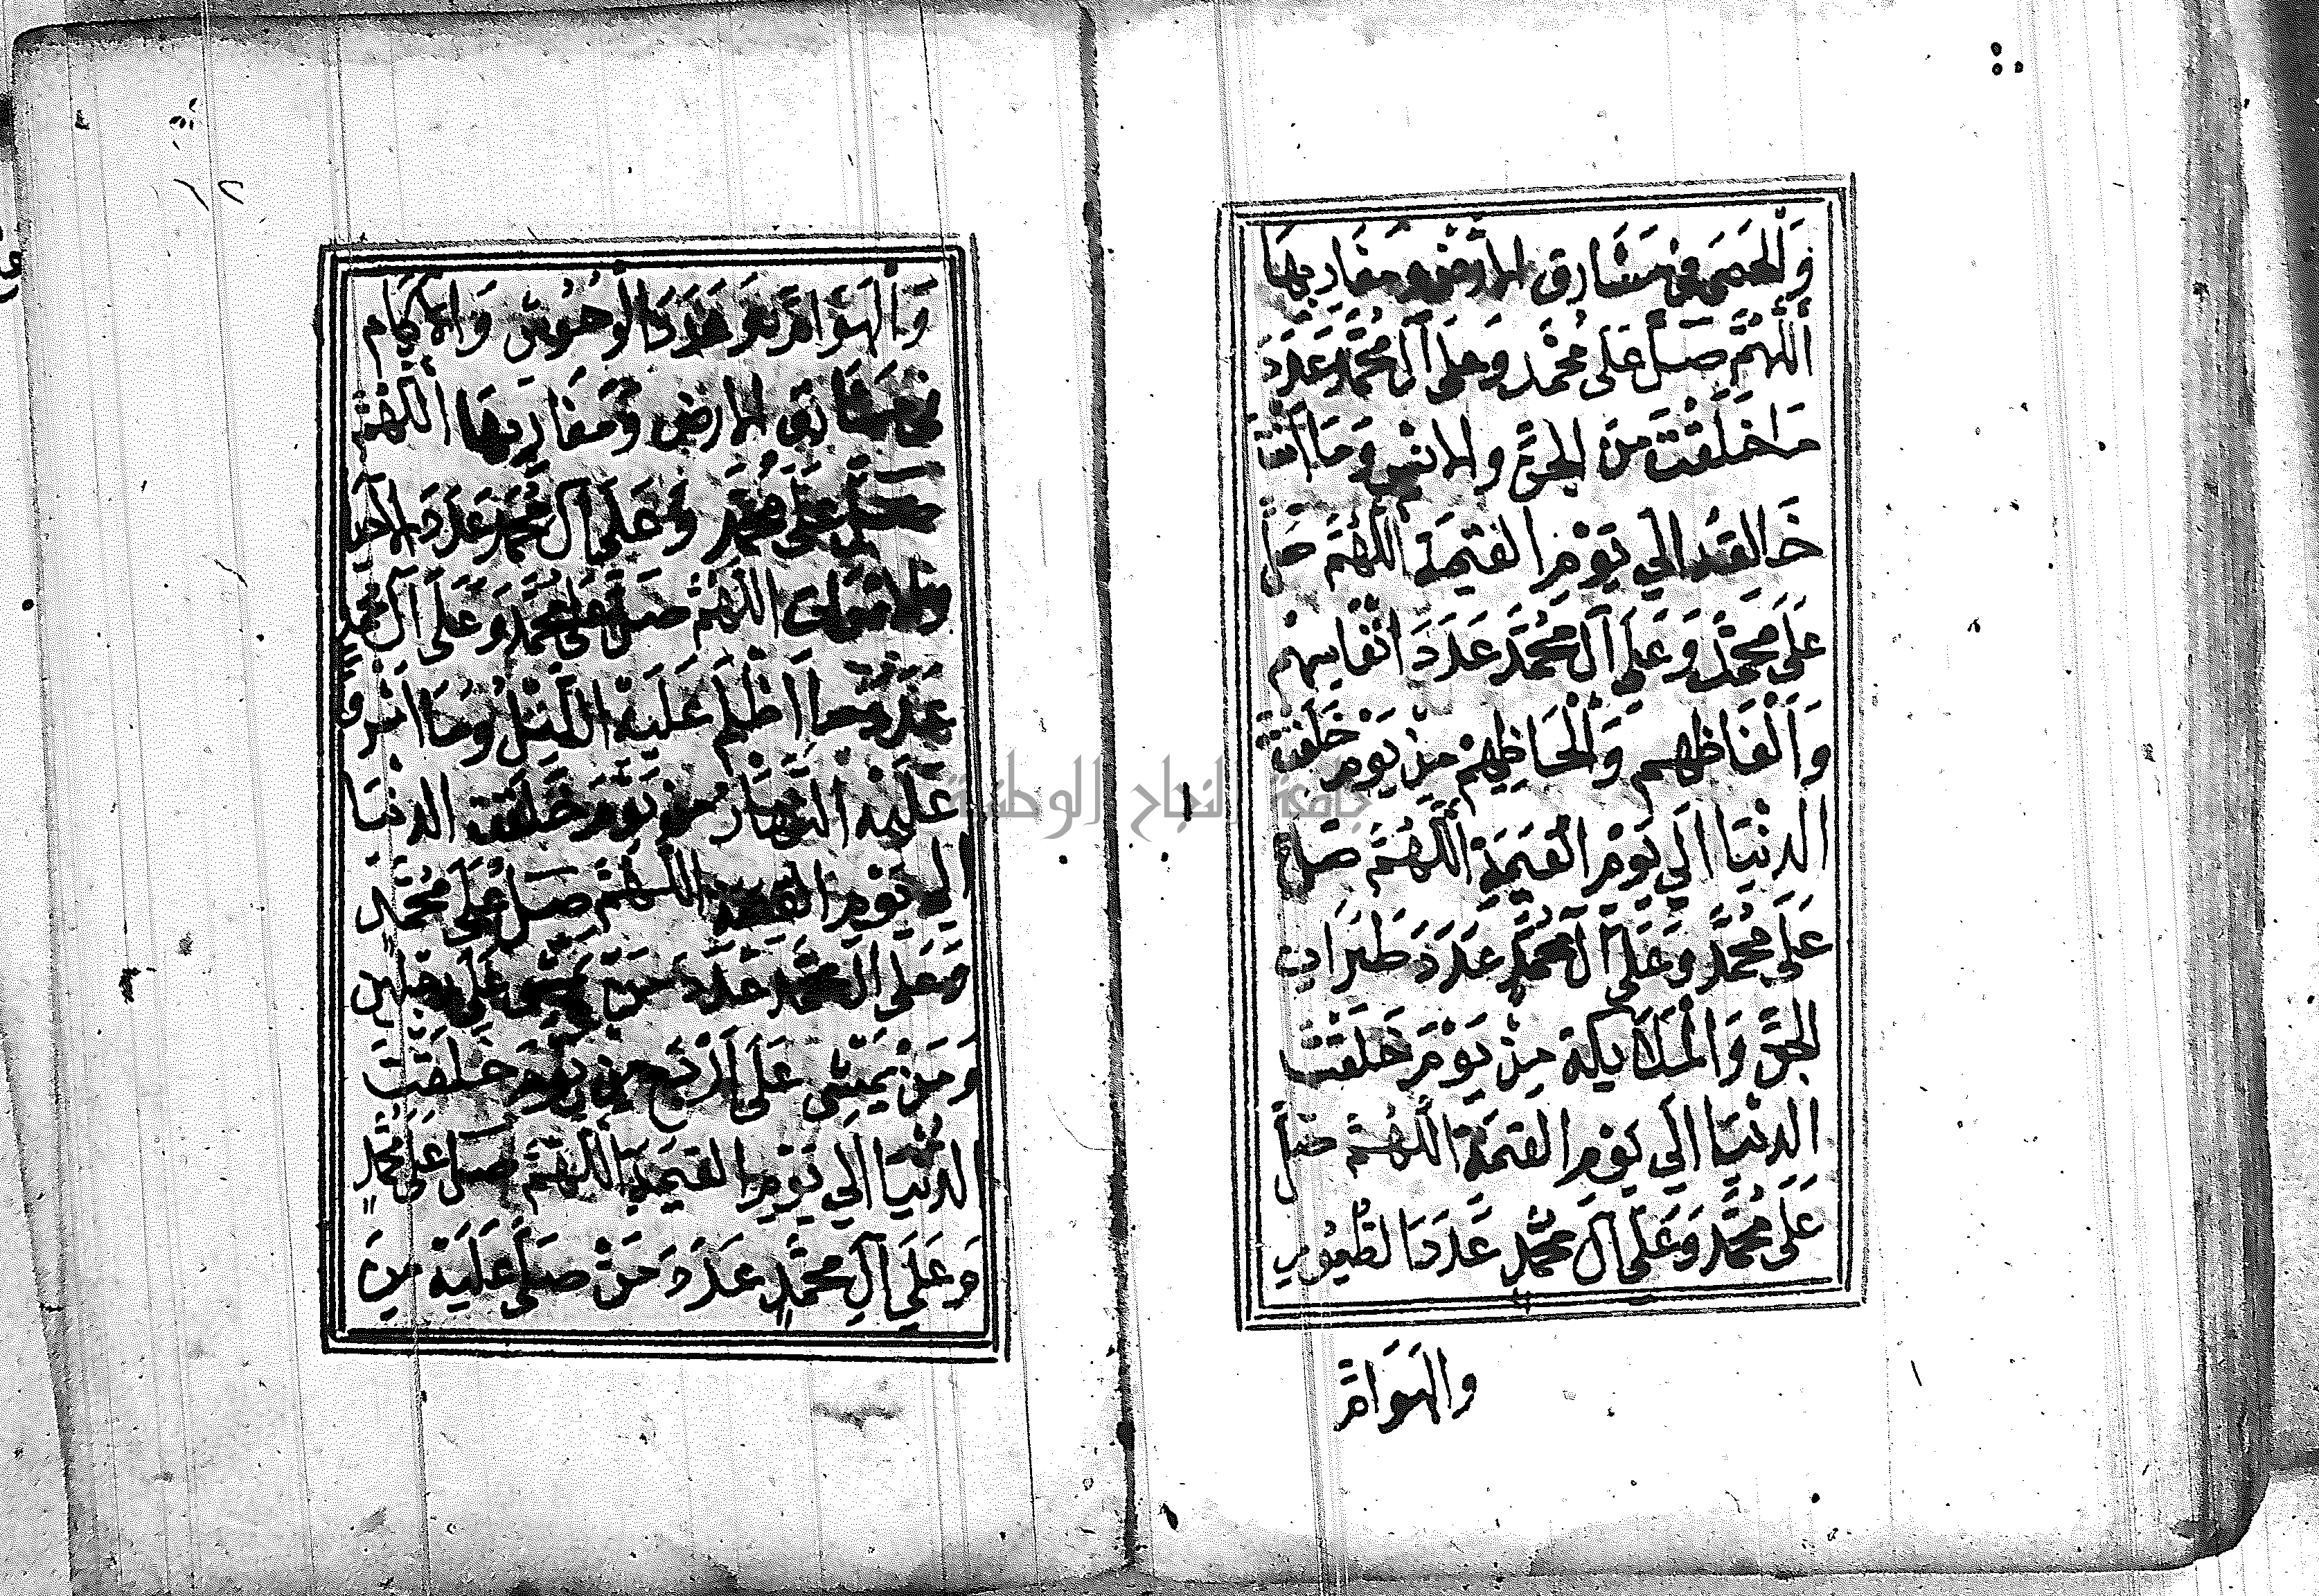 وَالْحَصَى فِي مَشَارِقِ الارْضِ وَمَغَارِبِهَا
اَللّٰهُمَّ صَلِّ عَلَى مُحَمَّدٍ وَعَلَى آلِ مُحَمَّدٍ عَدَدَ
مَا خَلَقْتَ مِنَ الْجِنِّ وَالانْسِ وَمَا اَنْتَ
خَالِقُهُ اِلَى يَوْمِ الْقِيمَةِ اَللّٰهُمَّ صَلِّ
عَلَى مُحَمَّدٍ وَعَلَى آلِ مُحَمَّدٍ عَدَدَ اَنْفَاسِهِمْ
وَاَلْفَاظِهِمْ وَاَلْحَاظِهِمْ مِنْ يَوْمِ خَلَقْتَ
الدُّنْيَا اِلَى يَوْمِ الْقِيمَةِ اَللّٰهُمَّ صَلِّ
عَلَى مُحَمَّدٍ وَعَلَى آلِ مُحَمَّدٍ عَدَدَ طَيَرَانِ
الْجِنِّ وَالْمَلَايِكَةِ مِنْ يَوْمِ خَلَقْتَ
الدُّنْيَا اِلَى يَوْمِ الْقِيمَةِ اَللّٰهُمَّ صَلِّ
عَلَى مُحَمَّدٍ وَعَلَى آلِ مُحَمَّدٍ عَدَدَ الطُّيُورِ
وَالْهَوَامِّ
وَالْهَوَامِّ وَعَدَدَ الْوُحُوشِ وَالاكَامِ
فِي مَشَارِقِ الارْضِ وَمَغَارِبِهَا اَللّٰهُمَّ
صَلِّ عَلَى مُحَمَّدٍ وَعَلَى آلِ مُحَمَّدٍ عَدَدَ الاحْيَا
وَالامْوَاتِ اَللّٰهُمَّ صَلِّ عَلَى مُحَمَّدٍ وَعَلَى آلِ مُحَمَّدٍ
عَدَدَ مَا اَظْلَمَ عَلَيْهِ اللَّيْلُ وَمَا اَشْرَقَ
عَلَيْهِ النَّهَارُ مِنْ يَوْمِ خَلَقْتَ الدُّنْيَا
اِلَى يَوْمِ الْقِيمَةِ اَللّٰهُمَّ صَلِّ عَلَى مُحَمَّدٍ
وَعَلَى آلِ مُحَمَّدٍ عَدَدَ مَنْ يَمْشِي عَلَى رِجْلَيْنِ
وَمَنْ يَمْشِي عَلَى اَرْبَعٍ مِنْ يَوْمِ خَلَقْتَ
الدُّنْيَا اِلَى يَوْمِ الْقِيمَةِ اَللّٰهُمَّ صَلِّ عَلَى مُحَمَّدٍ
وَعَلَى آلِ مُحَمَّدٍ عَدَدَ مَنْ صَلَّى عَلَيْهِ مِنَ
جامعة النجاح الوطنية